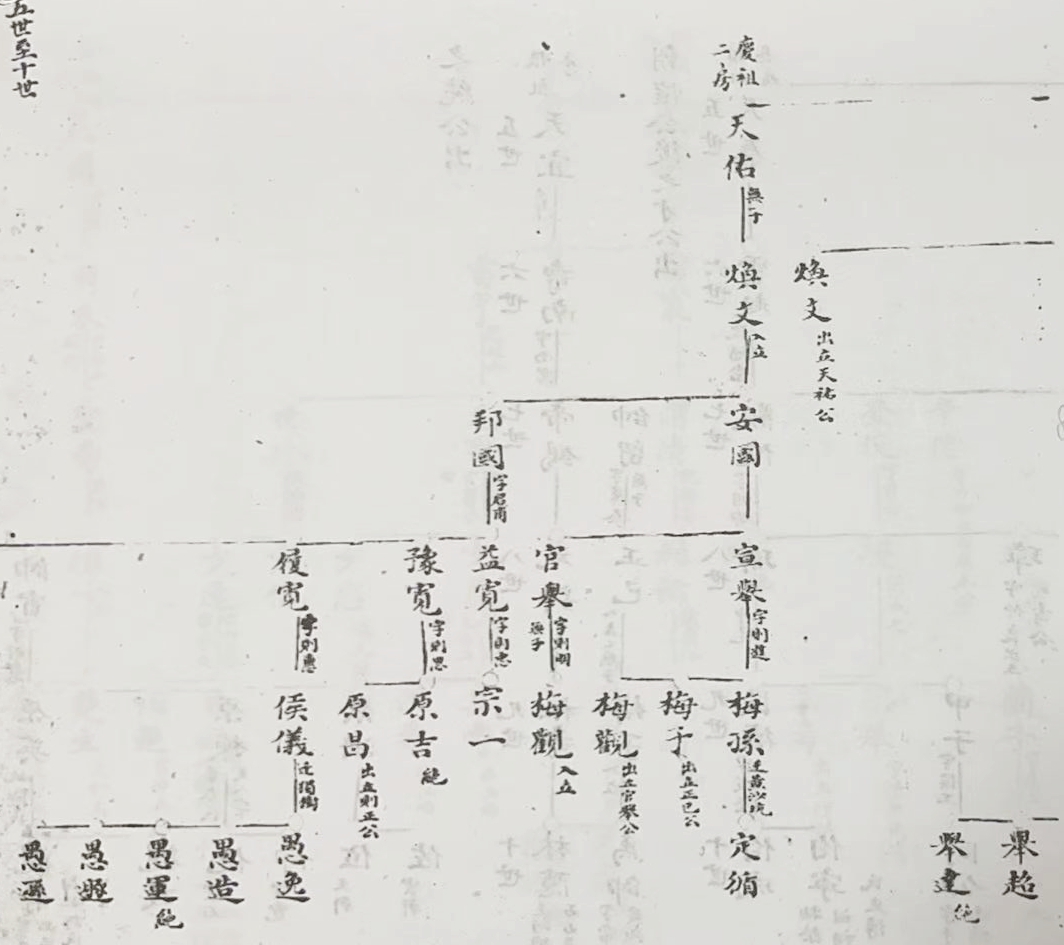 慶祖
二房
天佑
無子
煥文
入立
煥文
出立天祐公
安國
邦國
字君甫
宣舉
字則進
官舉
字則明
無子
益寬
字則忠
豫寬
字則思
履寬
字則惠
梅孫
梅子
出立正己公
梅觀
出立官舉公
梅觀
入立
宗一
原吉
絕
原昌
出立則正公
侯儀
舉超
舉達
絕
定循
愚逸
愚造
愚運
絕
愚遜
五世至十世